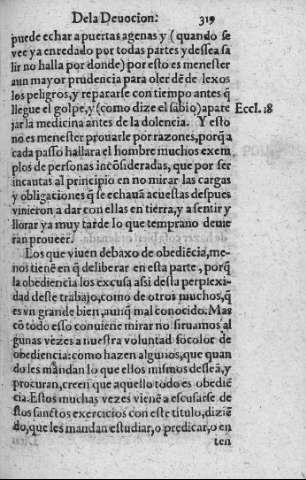 De la Deuocion. 319
puede echar a puertas agenas y (quando se
vee ya enredado por todas partes y dessea sa
lir no halla por donde) por esto es menester
aun mayor prudencia para oler dēde lexos
los peligros, y repararse con tiempo antes q̃
llegue el golpe, y (como dize el sabio) apare Eccl. 18
jar la medicina antes de la dolencia. Y esto
no es menester prouarle por razones, porq̃ a
cada passo hallara el hombre muchos exem
plos de personas incōsideradas, que por ser
incautas al principio en no mirar las cargas
y obligaciones q̃ se echauā acuestas despues
vinieron a dar con ellas en tierra, y a sentir y
llorar ya muy tarde lo que temprano deuie
ran proueer.
Los que viuen debaxo de obediēcia, me-
nos tienē en q̃ deliberar en esta parte, porq̃
la obediencia los excusa assi desta perplexi-
dad deste trabajo, como de otros muchos, q̃
es vn grande bien, aunq̃ mal conocido. Mas
cō todo esso conuiene mirar no siruamos al
gunas vezes a nuestra voluntad socolor de
obediencia: como hazen algunos, que quan
do les mandan lo que ellos mismos desseā, y
procuran, creen que aquello todo es obediē
cia. Estos muchas vezes vienē a escusarse de
los sanctos exercicios con este titulo, diziē-
do, que les mandan estudiar, o predicar, o en
ten